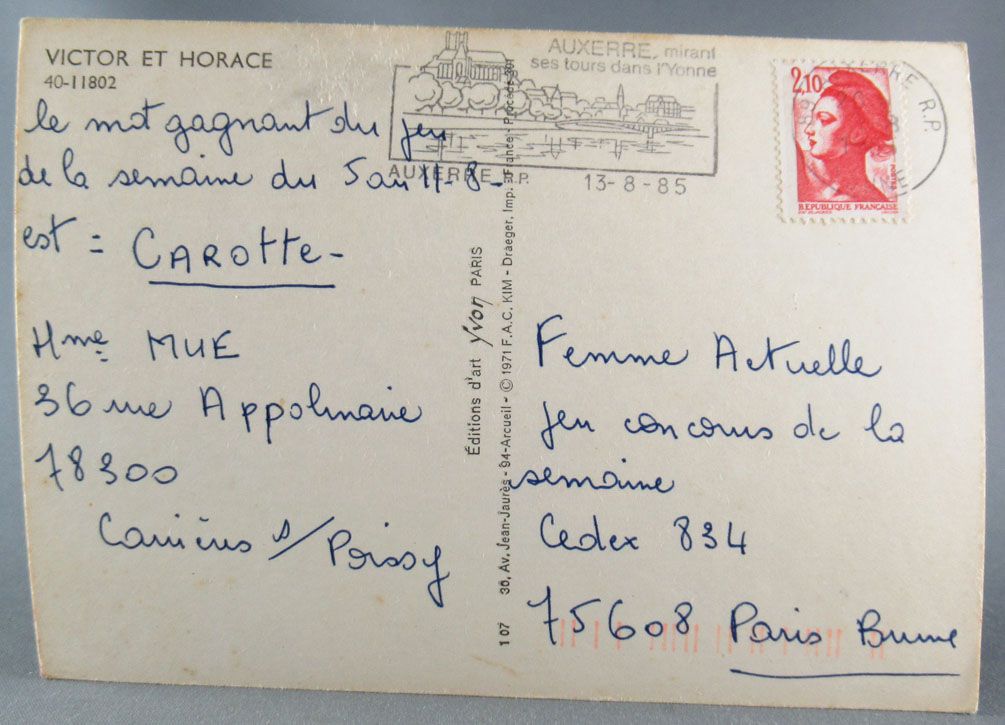 VICTOR ET HORACE
40-11802
le mot gagnant du jeu
de la semaine du 5 au 11-8-
est = CAROTTE-
Hme MUE
36 rue Appolinaire
78300
Carrières s/ Poissy
AUXERRE, mirant
ses tours dans l'Yonne
AUXERRE R.P.
13-8-85
AUXERRE R.P.
2,10
REPUBLIQUE FRANÇAISE
Éditions d'art Yvon PARIS
107 36, Av. Jean-Jaurès - 94-Arcueil - © 1971 F.A.C. KIM - Draeger, Imp. (France) - Procédé
Femme Actuelle
Jeu concours de la
semaine
Cedex 834
75608 Paris Brune